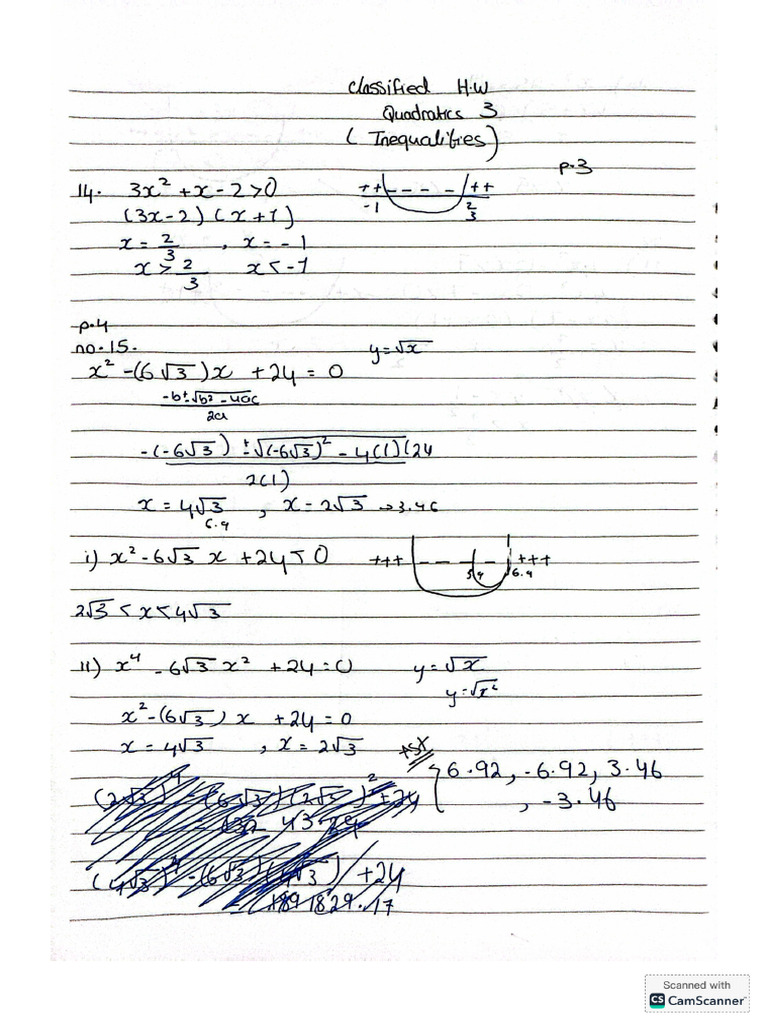 Classified H.W
Quadratics 3
( Inequalities)
p.3
14. 3x² + x - 2 > 0 ++ - - - - ++
(3x-2) (x+1) -1 2/3
x = 2/3 , x = -1
x > 2/3 x < -1
p.4
no.15. y=√x
x² - (6√3)x + 24 = 0
-b±√b²-4ac
2a
-(-6√3) ± √(-6√3)² - 4(1)(24
2(1)
x = 4√3 , x = 2√3 → 3.46
6.9
i) x² - 6√3 x + 24 < 0 +++ - - - - +++
6.9
2√3 < x < 4√3
11) x⁴ - 6√3 x² + 24 = 0 y=√x
y=√x²
x² - (6√3) x + 24 = 0
x = 4√3 , x = 2√3
6.92, -6.92, 3.46
, -3.46
(2√3)⁴ - (6√3)(2√3)² + 24
43.29
(4√3)⁴ - (6√3)(4√3) + 24
Scanned with
CS CamScanner